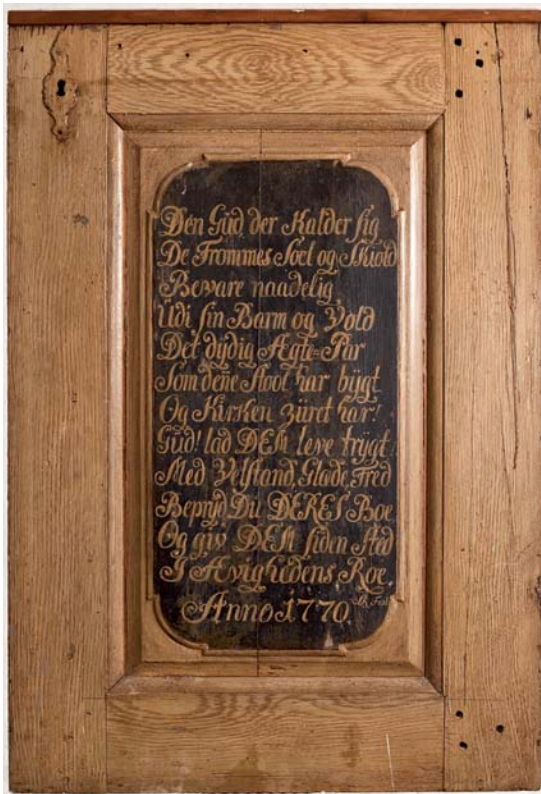 Den Gùd der Kalder sig
De Frommes Soel og Skiold
Bevare naadelig
Udi sin Barm og Vold
Det dÿdig Ægte=Par
Som deñe Stool har bÿgt
Og Kirken ziiret har!
Gùd! lad DEM leve trÿgt!
Med Velstand, Glæde, Fred
Beprÿd Du DERES Boe
Og giv DEM siden Sted
I Ævighedens Roe.
Anno 1770.